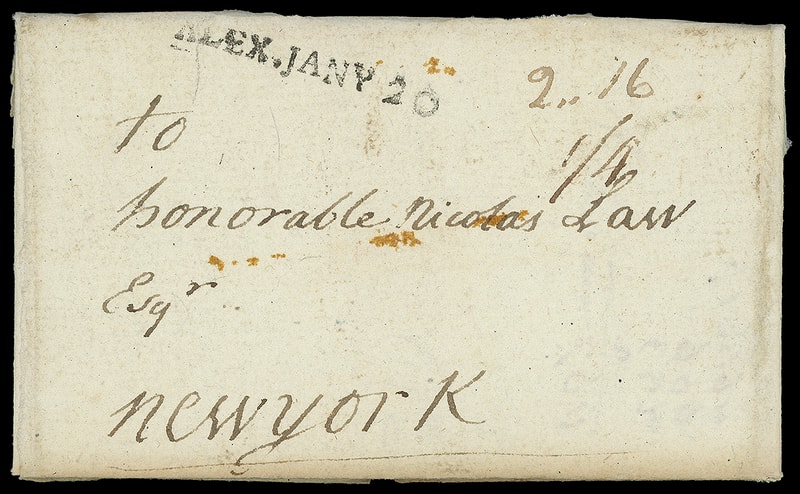 ALEX. JANY 20
2,, 16
1/4
to
honorable Nicolas Law
Esqr
newyork